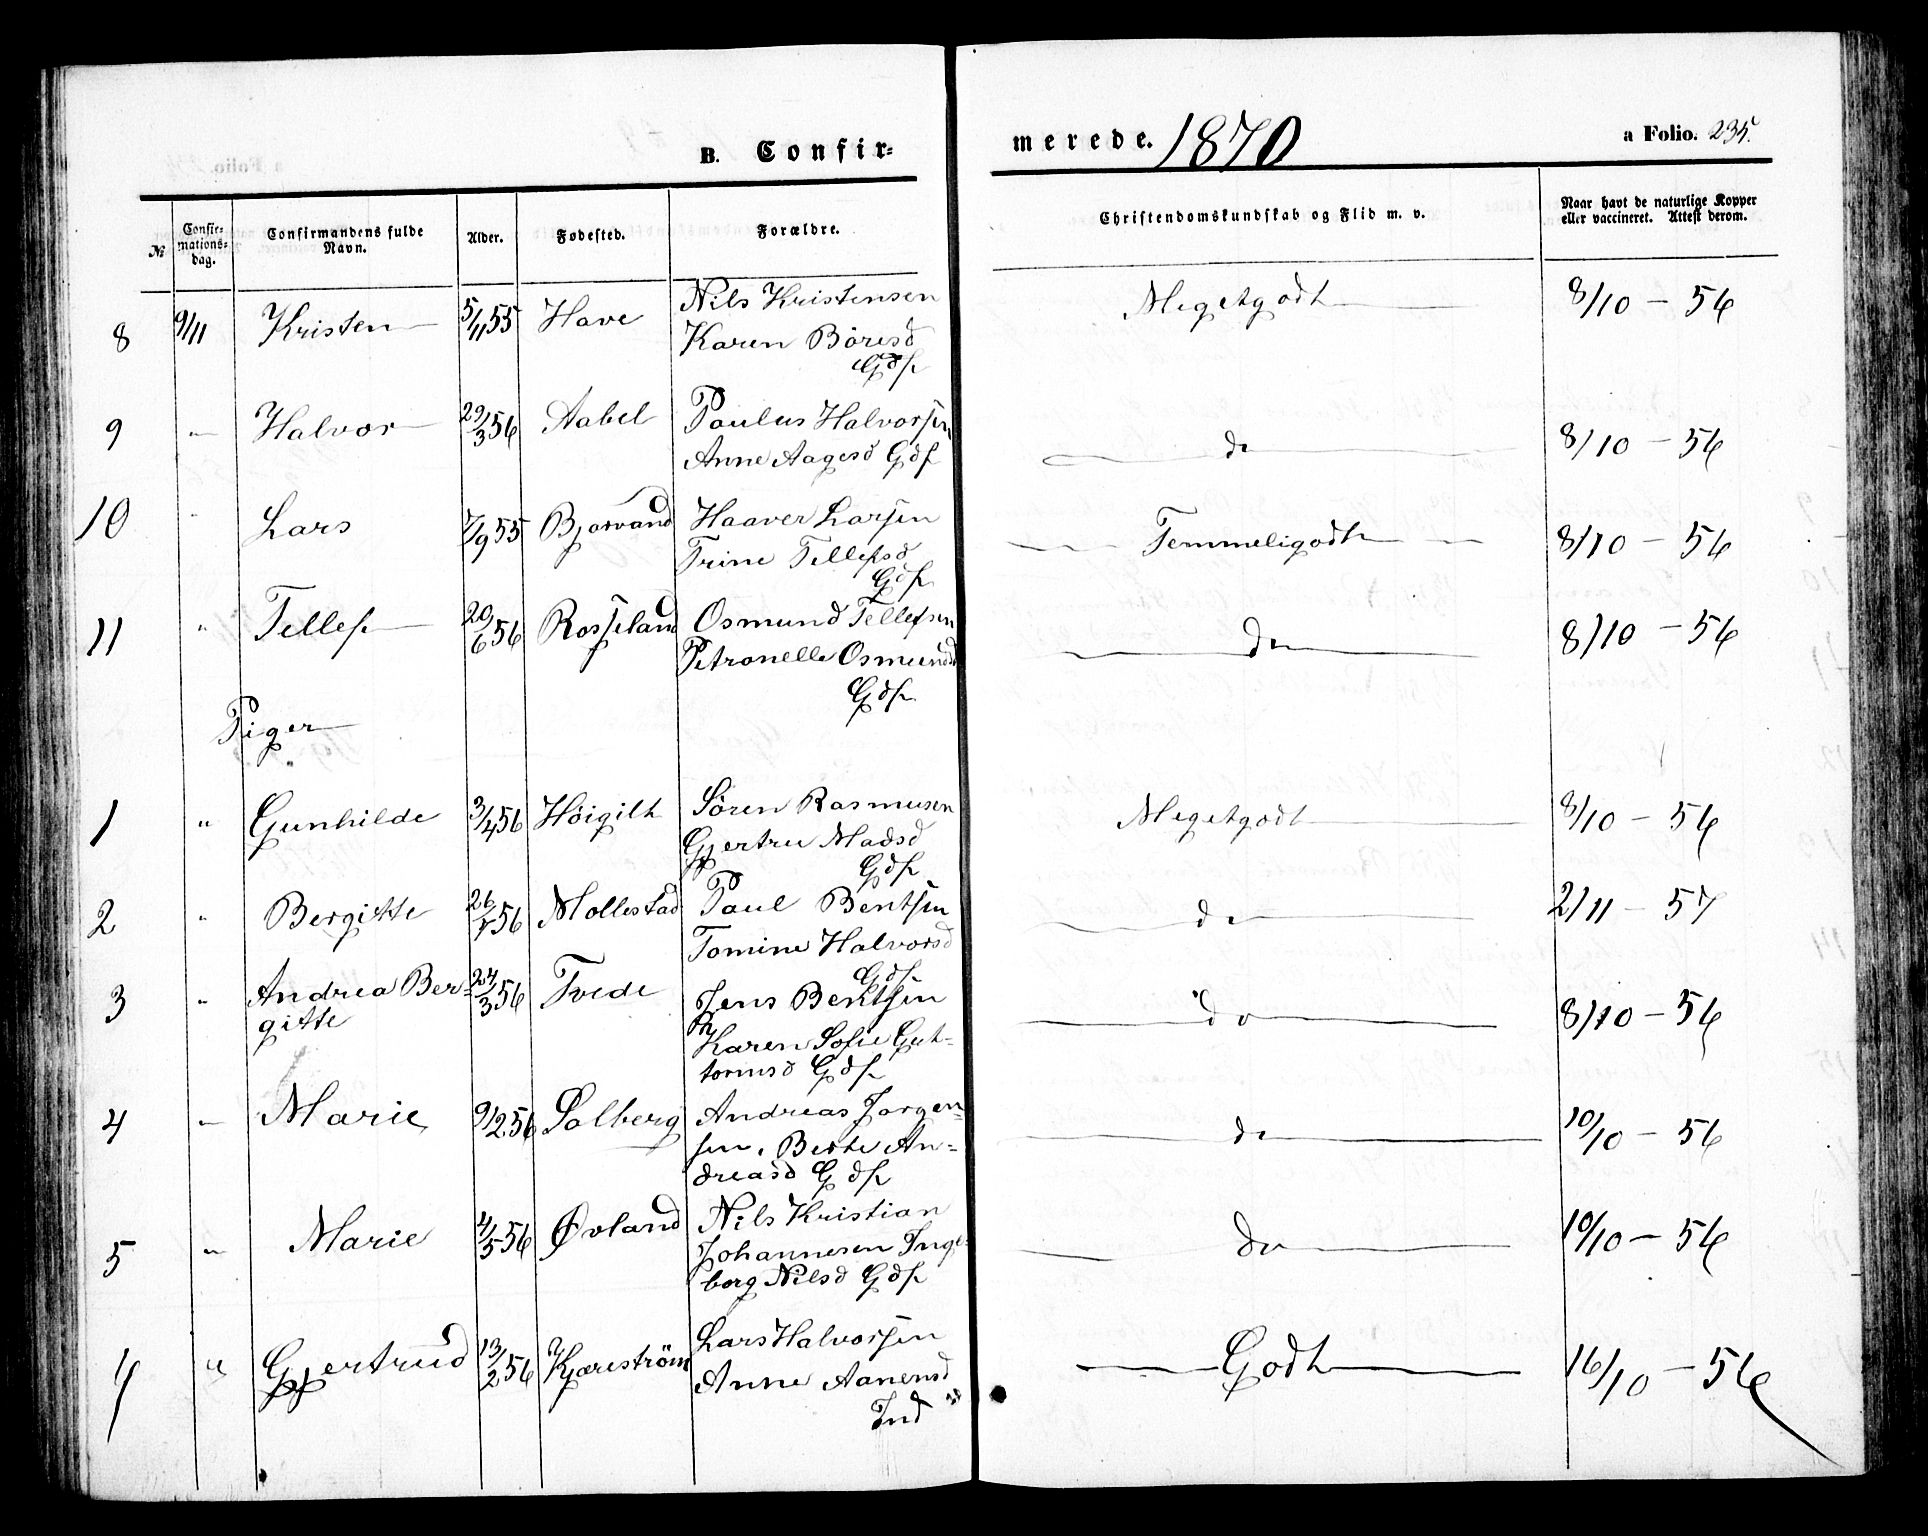 B. Confir-
merede. 1870
a Folio. 235.
№
Confir-
mations-
dag.
Confirmandens fulde
Navn.
Alder.
Fødested.
Forældre.
Christendomskundskab og Flid m. v.
Naar havt de naturlige Kopper
eller vaccineret. Attest derom.
8 9/11 Kristen 5/11 55 Have Nils Kristensen Megetgodt 8/10 - 56
Karen Böresd
Gdf
9 " Halvor 29/3 56 Aabel Paulus Halvorsen do 8/10 - 56
Anne Aagesd Gdf
10 " Lars 7/9 55 Bjorvand Haaver Larsen Temmeligodt 8/10 - 56
Trine Tellefsd
Gdf
11 " Tellef 20/6 56 Rosseland Osmund Tellefsen do 8/10 - 56
Petronelle Osmundd
Gdf
Piger
1 " Gunhilde 3/4 56 Høigilt Sören Rasmusen Megetgodt 8/10 - 56
Gjertru Madsd
Gdf
2 " Bergitte 56 Mollestad Paul Bentsen do 2/11 - 57
Tomine Halvorsd
Gdf
3 " Andrea Ber- 24/3 56 Tvede Jens Bentsen do 8/10 - 56
gitte Karen Sofie Gut-
tormsd Gdf
4 " Marie 9/2 56 Solberg Andreas Jorgen- do 10/10 - 56
sen. Berte An-
dreasd Gdf
5 " Marie 4/5 56 Øvland Nils Kristian do 10/10 - 56
Johannesen Inge-
borg Nilsd Gdf
" Gjertrud 13/2 56 Kjæreström Lars Halvorsen Godt 16/10 - 56
Anne Aanensd
Ind